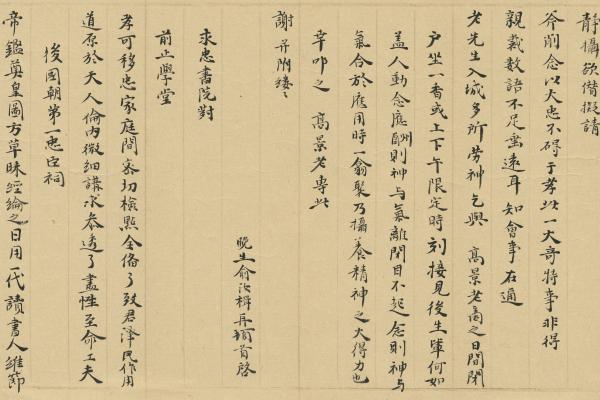 靜攝欲借擬請
斧削念以大忠不碍于孝此一大奇特事非得
親裁數語不足垂遠耳知會事在通
老先生入城多所勞神乞與 高景老商之日間閉
戶坐一香或上下午限定時刻接見後生輩何如
盖人動念應酬則神与氣離閉目不起念則神与
氣合於應用時一翕聚乃攝養精神之大得力也
幸叩之 高景老專此
謝 并附缕〻
晚生俞汝楫再頓首啓
求忠書院對
前止學堂
孝可移忠家庭間密切檢點全俻了致君澤民作用
道原於天人倫内微細講求參透了盡性至命工夫
後國朝第一忠臣祠
帝鑑奠皇圖方草昧經綸之日用一代讀書人維節